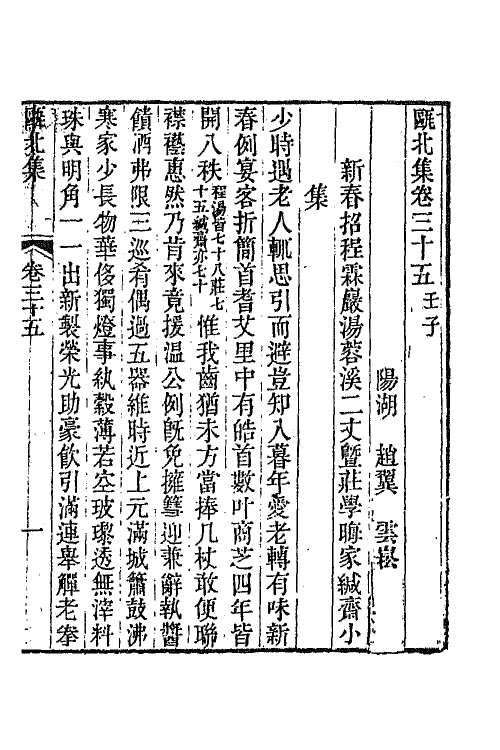 甌北集卷三十五 壬子
陽湖 趙翼 雲崧
新春招程霖巖湯蓉溪二丈暨莊學晦家緘齋小
集
少時遇老人輒思引而避豈知入暮年愛老轉有味新
春例宴客折簡首耆艾里中有皓首數叶商芝四年皆
開八秩程湯皆七十八莊七十五緘齋亦七十惟我齒猶未方當捧几杖敢便聯
襟襼惠然乃肯來竟援溫公例旣免擁篲迎兼辭執醬
饋酒弗限三巡肴偶過五器維時近上元滿城簫鼓沸
寒家少長物華侈獨燈事紈縠薄若空玻瓈透無滓料
珠與明角一一出新製榮光助豪飲引滿連舉觶老拳
甌北集 卷三十五 一